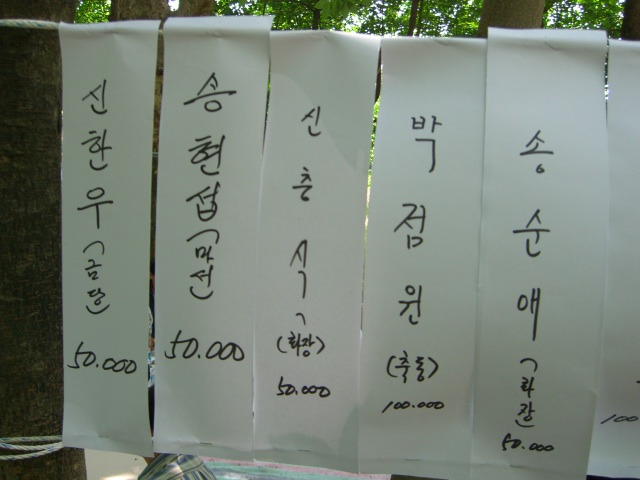 신한우(금단)
50.000
송현섭(마선)
50.000
신충식
(화장)
50.000
박점원
(축동)
100.000
송순애(화장
50.000
100